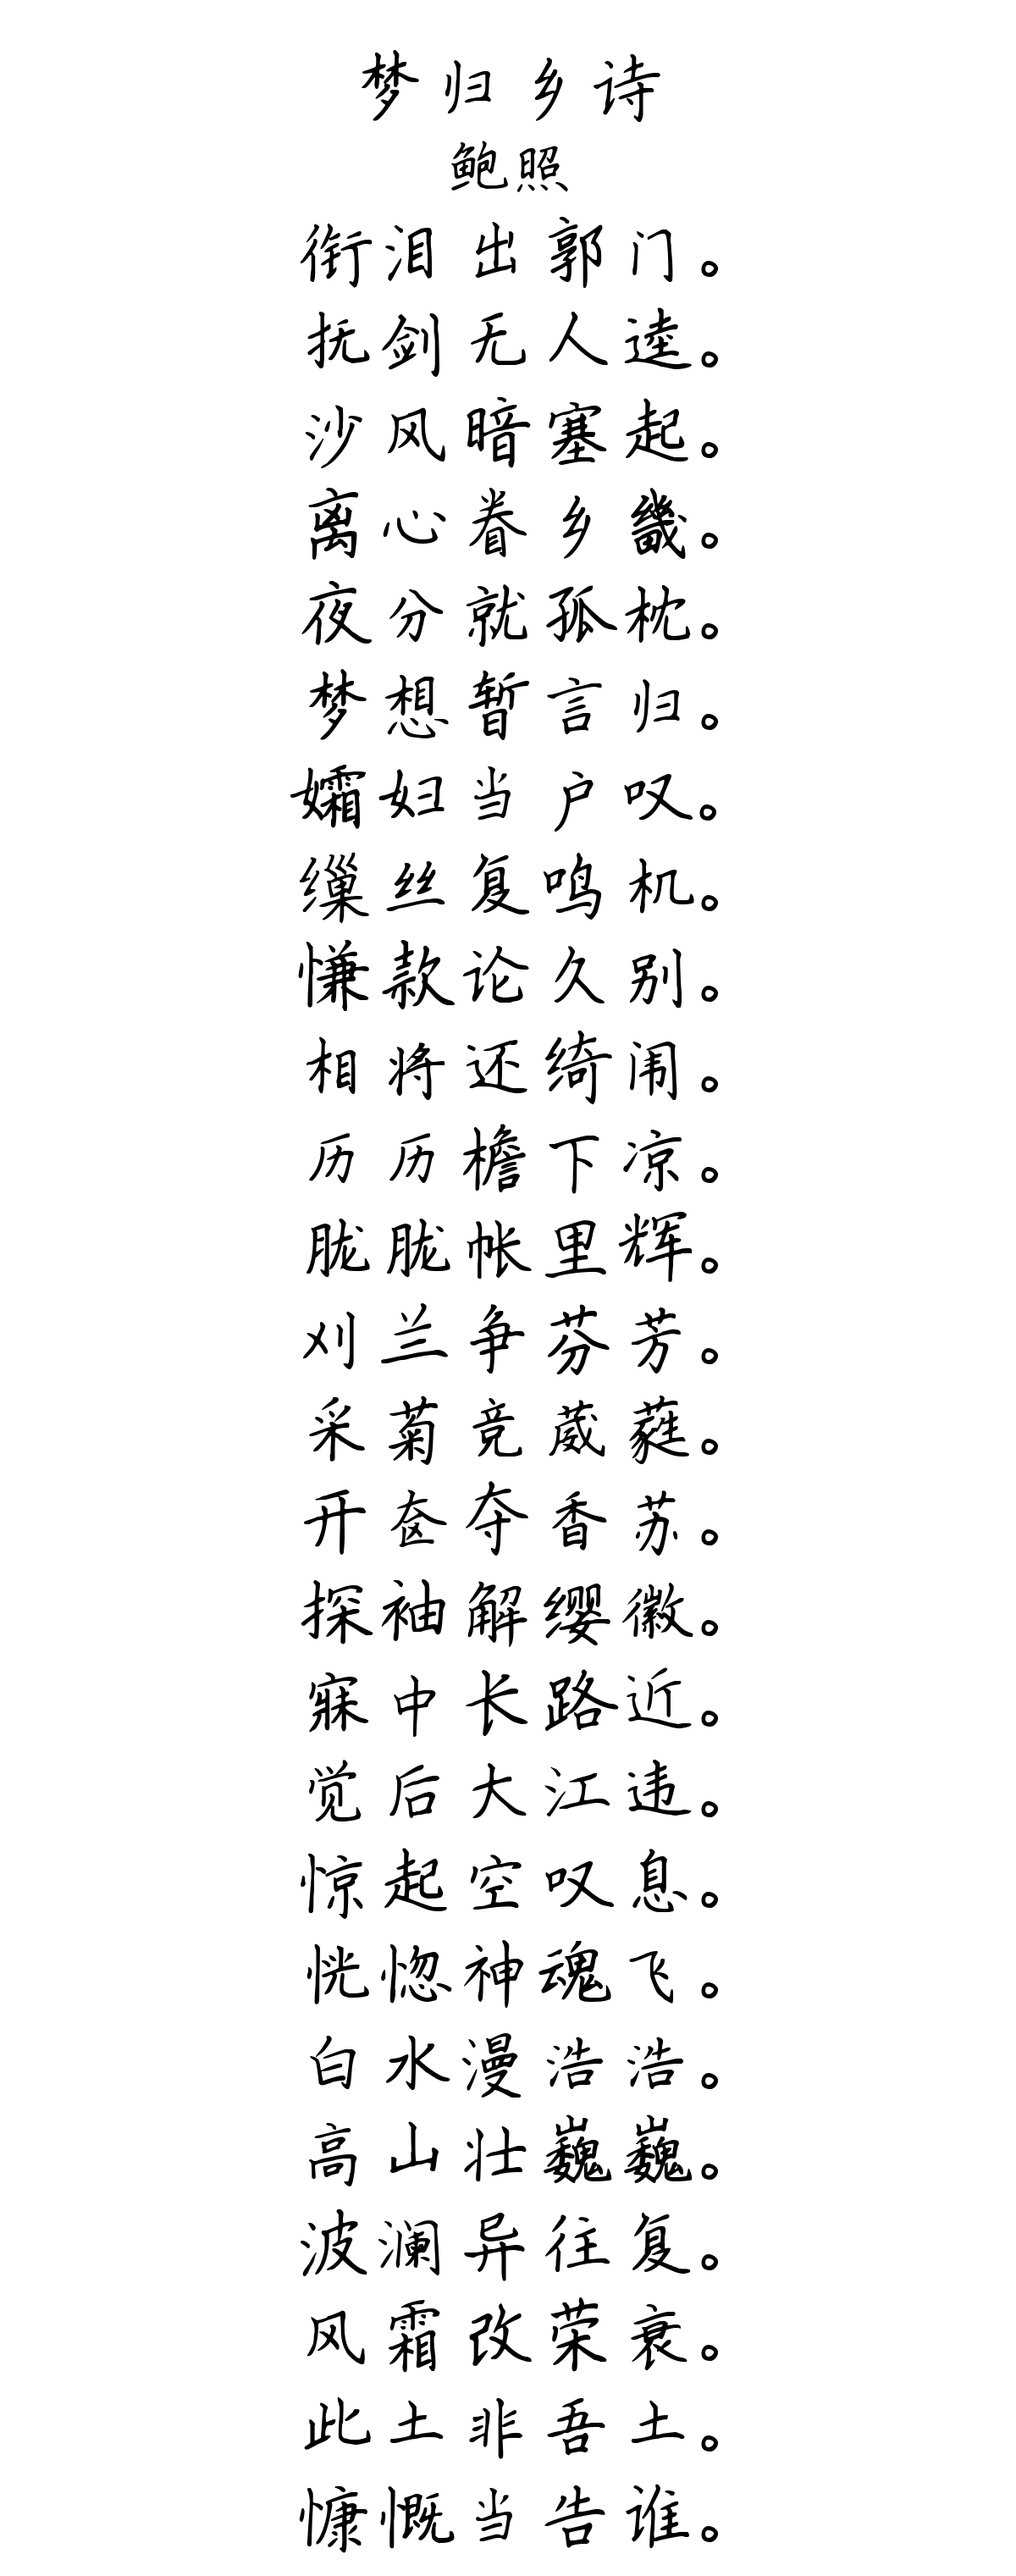 梦归乡诗
鲍照
衔泪出郭门。
抚剑无人逵。
沙风暗塞起。
离心眷乡畿。
夜分就孤枕。
梦想暂言归。
孀妇当户叹。
缫丝复鸣机。
慊款论久别。
相将还绮闱。
历历檐下凉。
胧胧帐里辉。
刈兰争芬芳。
采菊竞葳蕤。
开奁夺香苏。
探袖解缨徽。
寐中长路近。
觉后大江违。
惊起空叹息。
恍惚神魂飞。
白水漫浩浩。
高山壮巍巍。
波澜异往复。
风霜改荣衰。
此土非吾土。
慷慨当告谁。